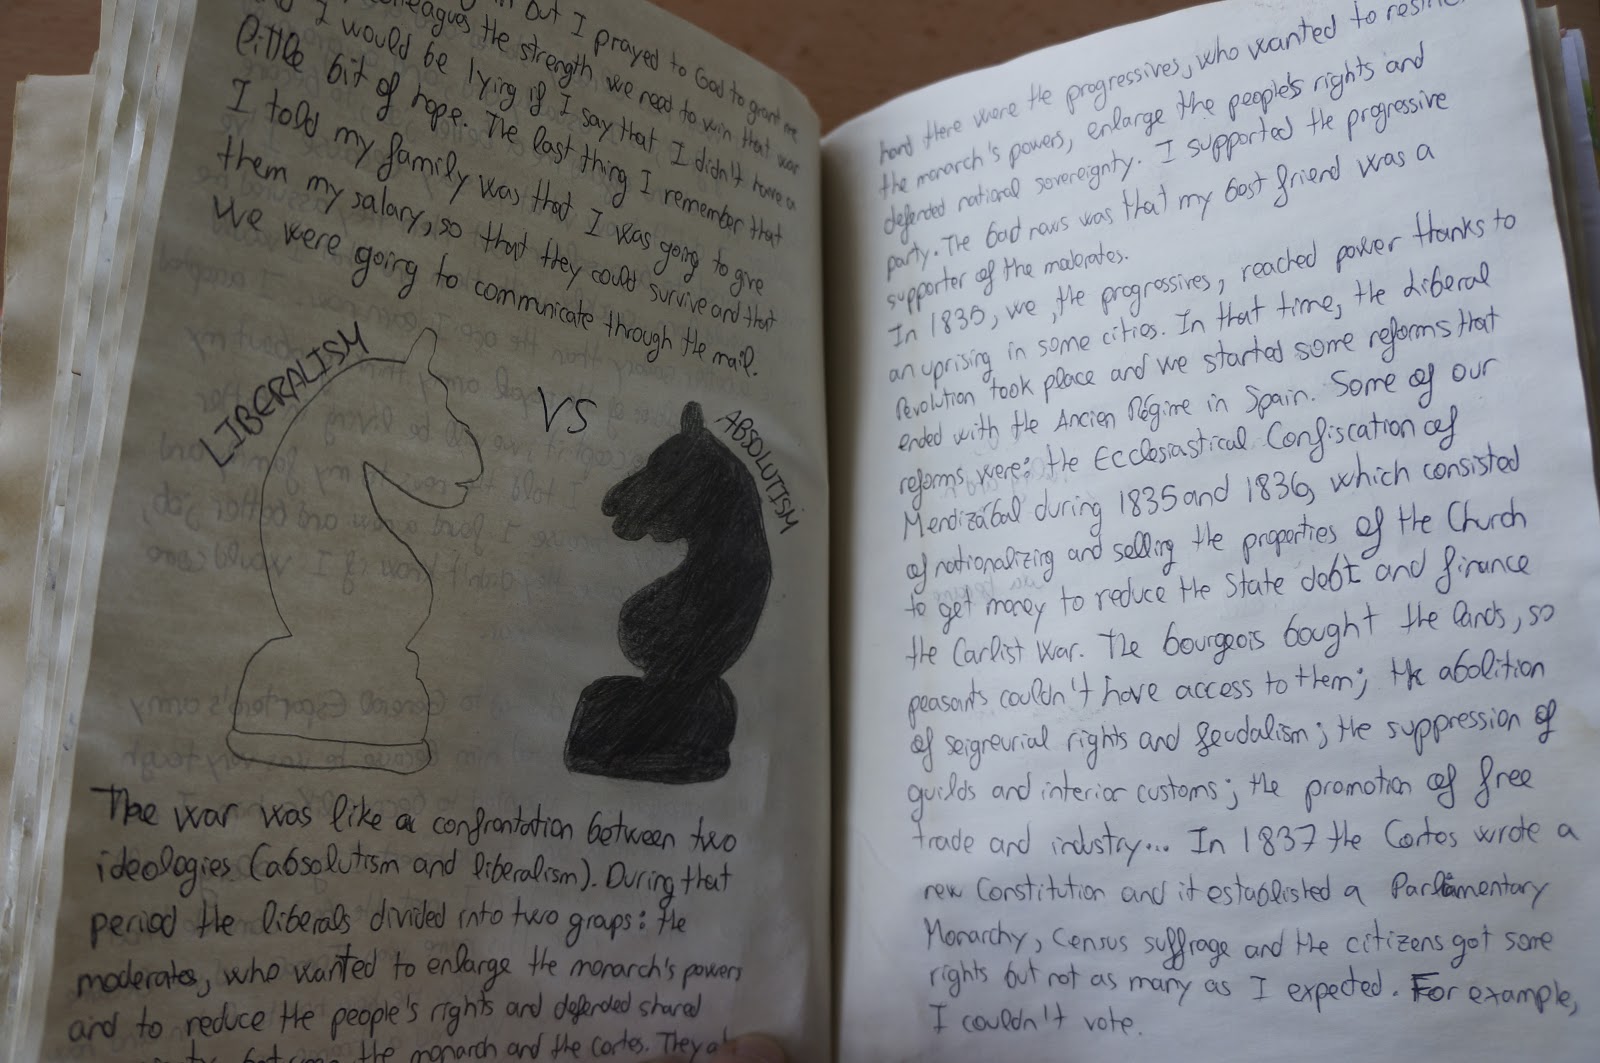 but I prayed to God to grant me
colleagues the strength we need to win that war
I would be lying if I say that I didn't have a
little bit of hope. The last thing I remember that
I told my family was that I was going to give
them my salary, so that they could survive and that
we were going to communicate through the mail.
LIBERALISM
VS
ABSOLUTISM
The war was like a confrontation between two
ideologies (absolutism and liberalism). During that
period the liberals divided into two groups: the
moderates, who wanted to enlarge the monarch's powers
and to reduce the people's rights and defended shared
between the monarch and the Cortes. They
hand there were the progressives, who wanted to
the monarch's powers, enlarge the people's rights and
defended national sovereignty. I supported the progressive
party. The bad news was that my best friend was a
supporter of the moderates.
In 1835, we, the progressives, reached power thanks to
an uprising in some cities. In that time, the Liberal
Revolution took place and we started some reforms that
ended with the Ancien Régime in Spain. Some of our
reforms were: the Ecclesiastical Confiscation of
Mendizábal during 1835 and 1836, which consisted
of nationalizing and selling the properties of the Church
to get money to reduce the State debt and finance
the Carlist War. The bourgeois bought the lands, so
peasants couldn't have access to them; the abolition
of seigneurial rights and feudalism; the suppression of
guilds and interior customs; the promotion of free
trade and industry... In 1837 the Cortes wrote a
new Constitution and it established a Parliamentary
Monarchy, Census suffrage and the citizens got some
rights but not as many as I expected. For example,
I couldn't vote.